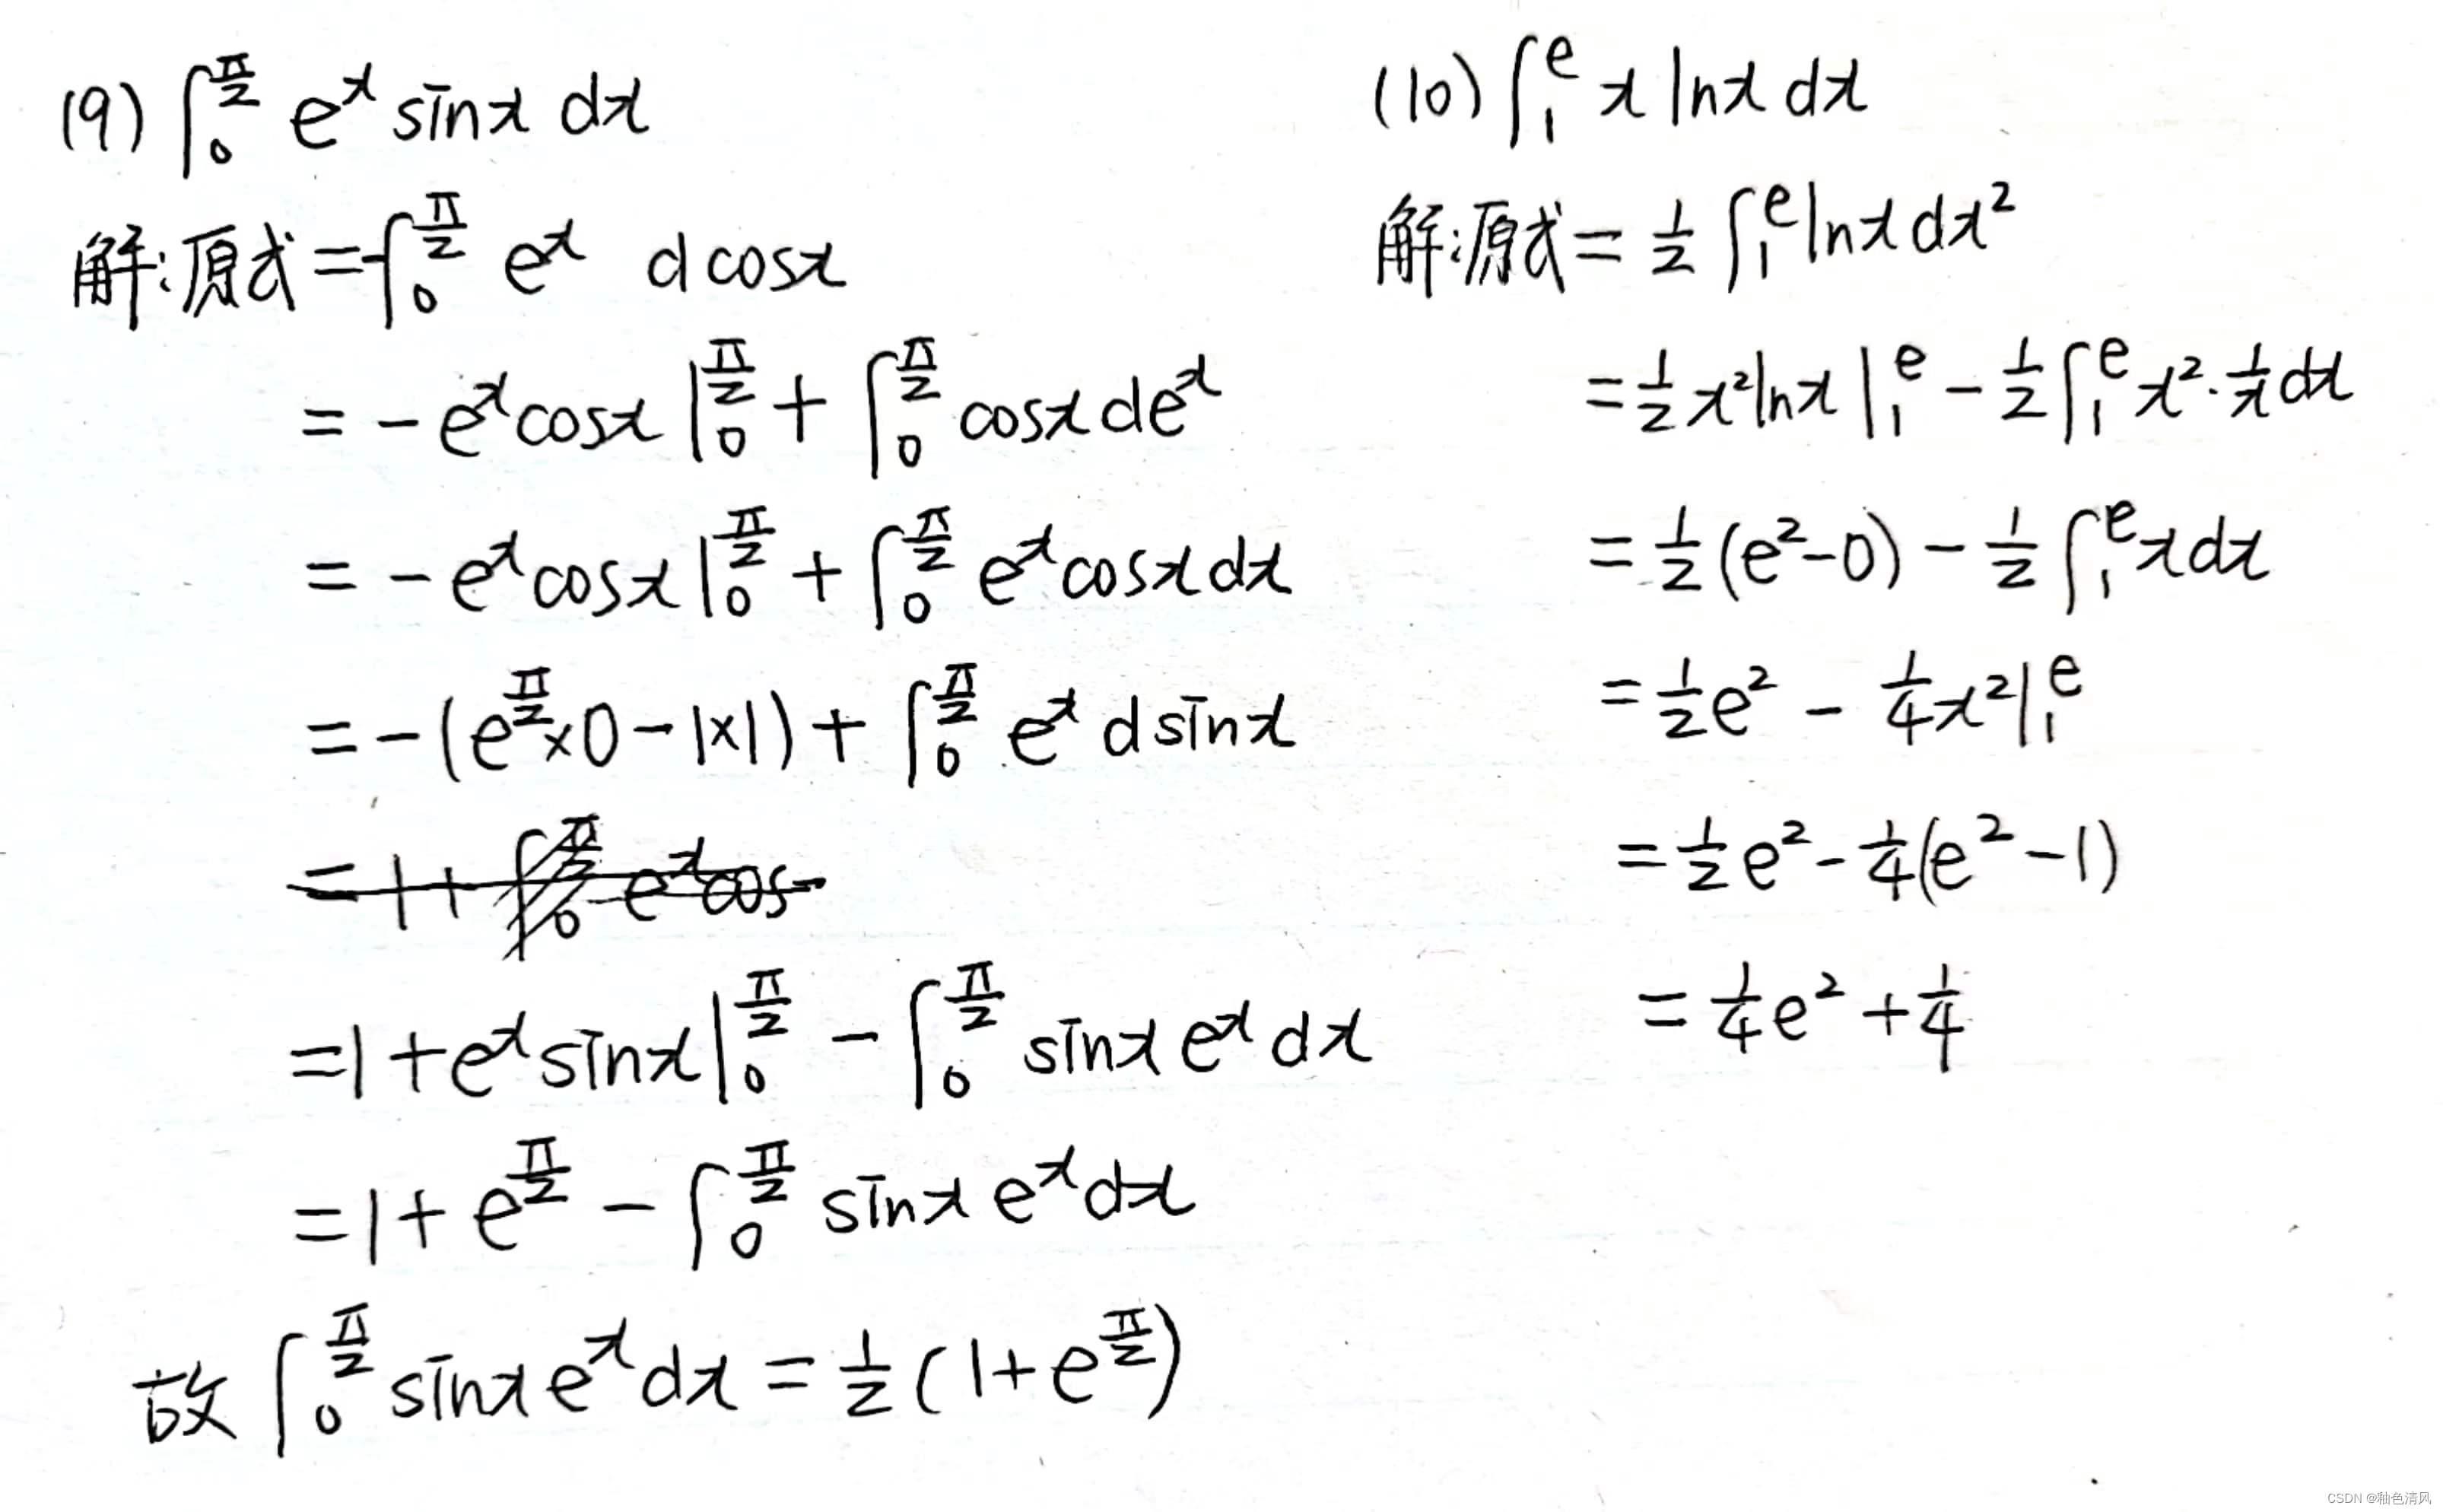 (9) ∫₀^{π/2} eˣ sinx dx
解:源式=-∫₀^{π/2} eˣ d cosx
= -eˣcosx |₀^{π/2} + ∫₀^{π/2} cosx deˣ
= -eˣcosx |₀^{π/2} + ∫₀^{π/2} eˣcosx dx
= -(e^{π/2}×0-1×1) + ∫₀^{π/2} eˣ d sinx
=1+∫₀^{π/2} eˣcos
=1+eˣsinx |₀^{π/2} - ∫₀^{π/2} sinx eˣ dx
=1+e^{π/2} - ∫₀^{π/2} sinx eˣdx
故 ∫₀^{π/2} sinx eˣ dx = ½(1+e^{π/2})
(10) ∫₁^e x lnx dx
解:源式= ½ ∫₁^e lnx dx²
=½ x²lnx |₁^e - ½ ∫₁^e x²·1/x dx
=½(e²-0) - ½ ∫₁^e x dx
=½e² - ¼x² |₁^e
=½e² - ¼(e²-1)
=¼e²+¼
CSDN @釉色清风